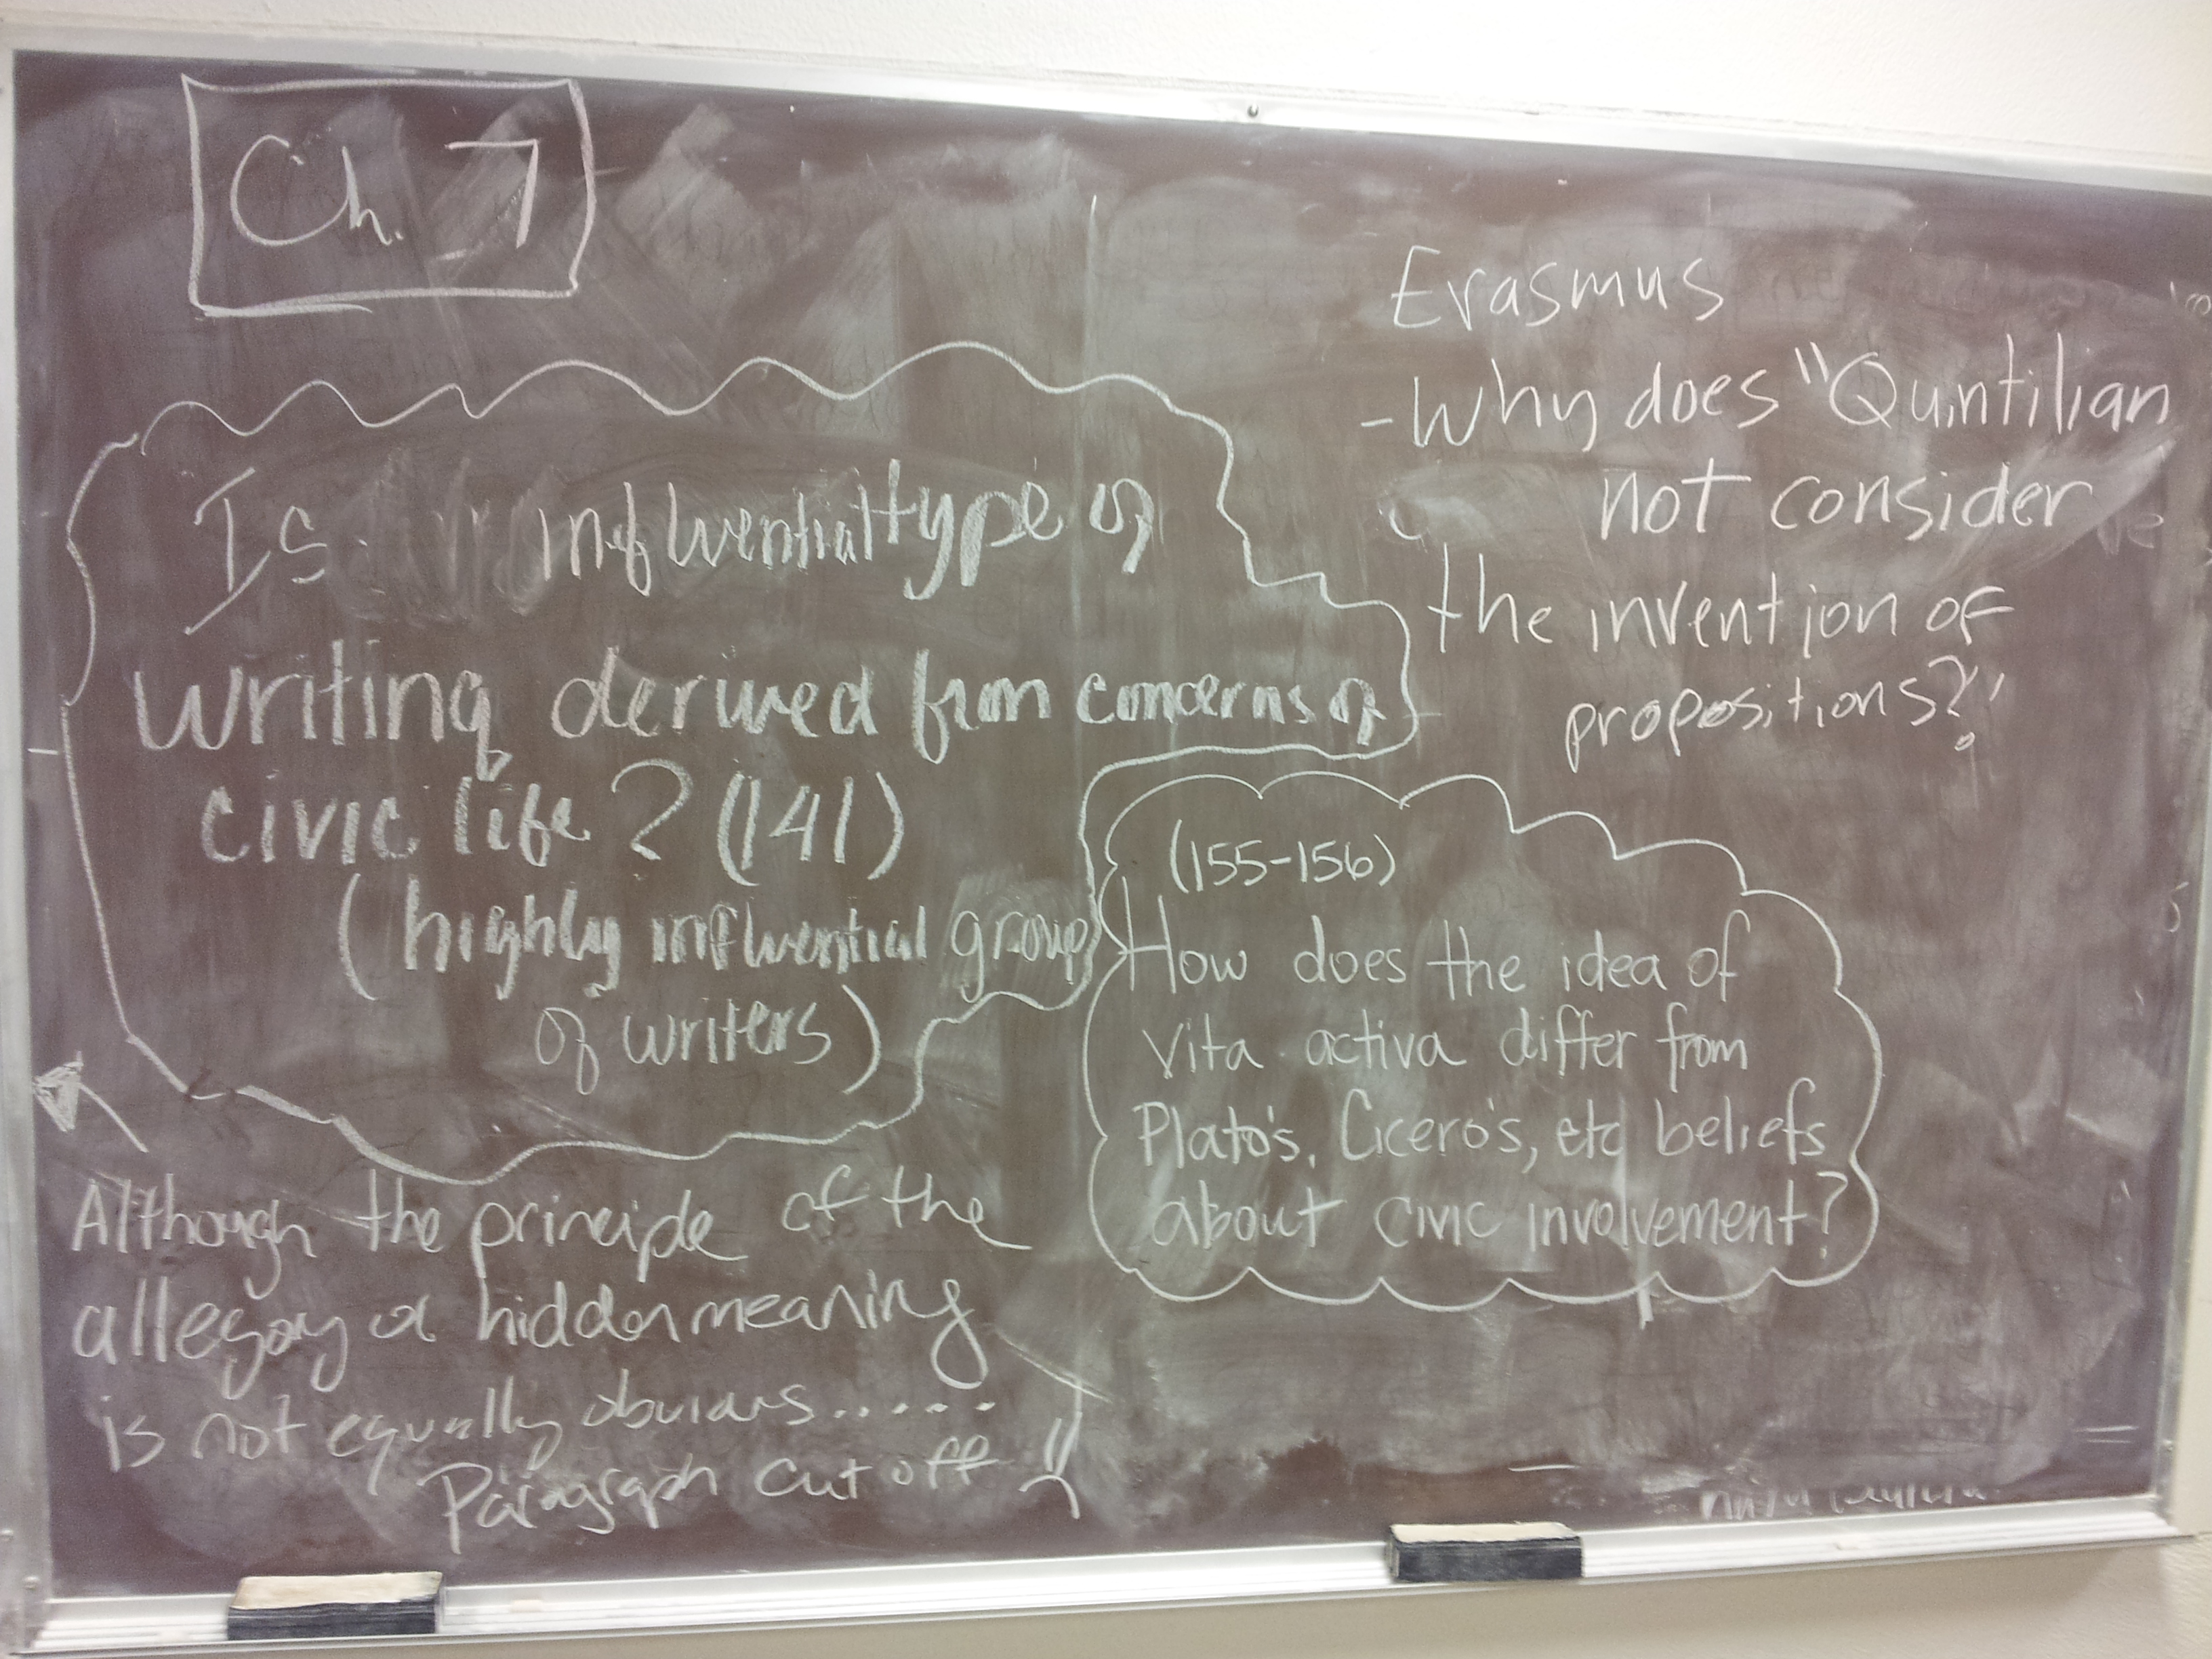 Ch. 7
Is influential type of
writing derived from concerns of
civic life? (141)
(highly influential group
of writers)
Although the principle of the
allegory or hidden meaning
is not equally obvious.....
Paragraph cut off
Erasmus
-Why does "Quintilian
not consider
the invention of
propositions?"
(155-156)
How does the idea of
vita activa differ from
Plato's, Cicero's, etc beliefs
about civic involvement?